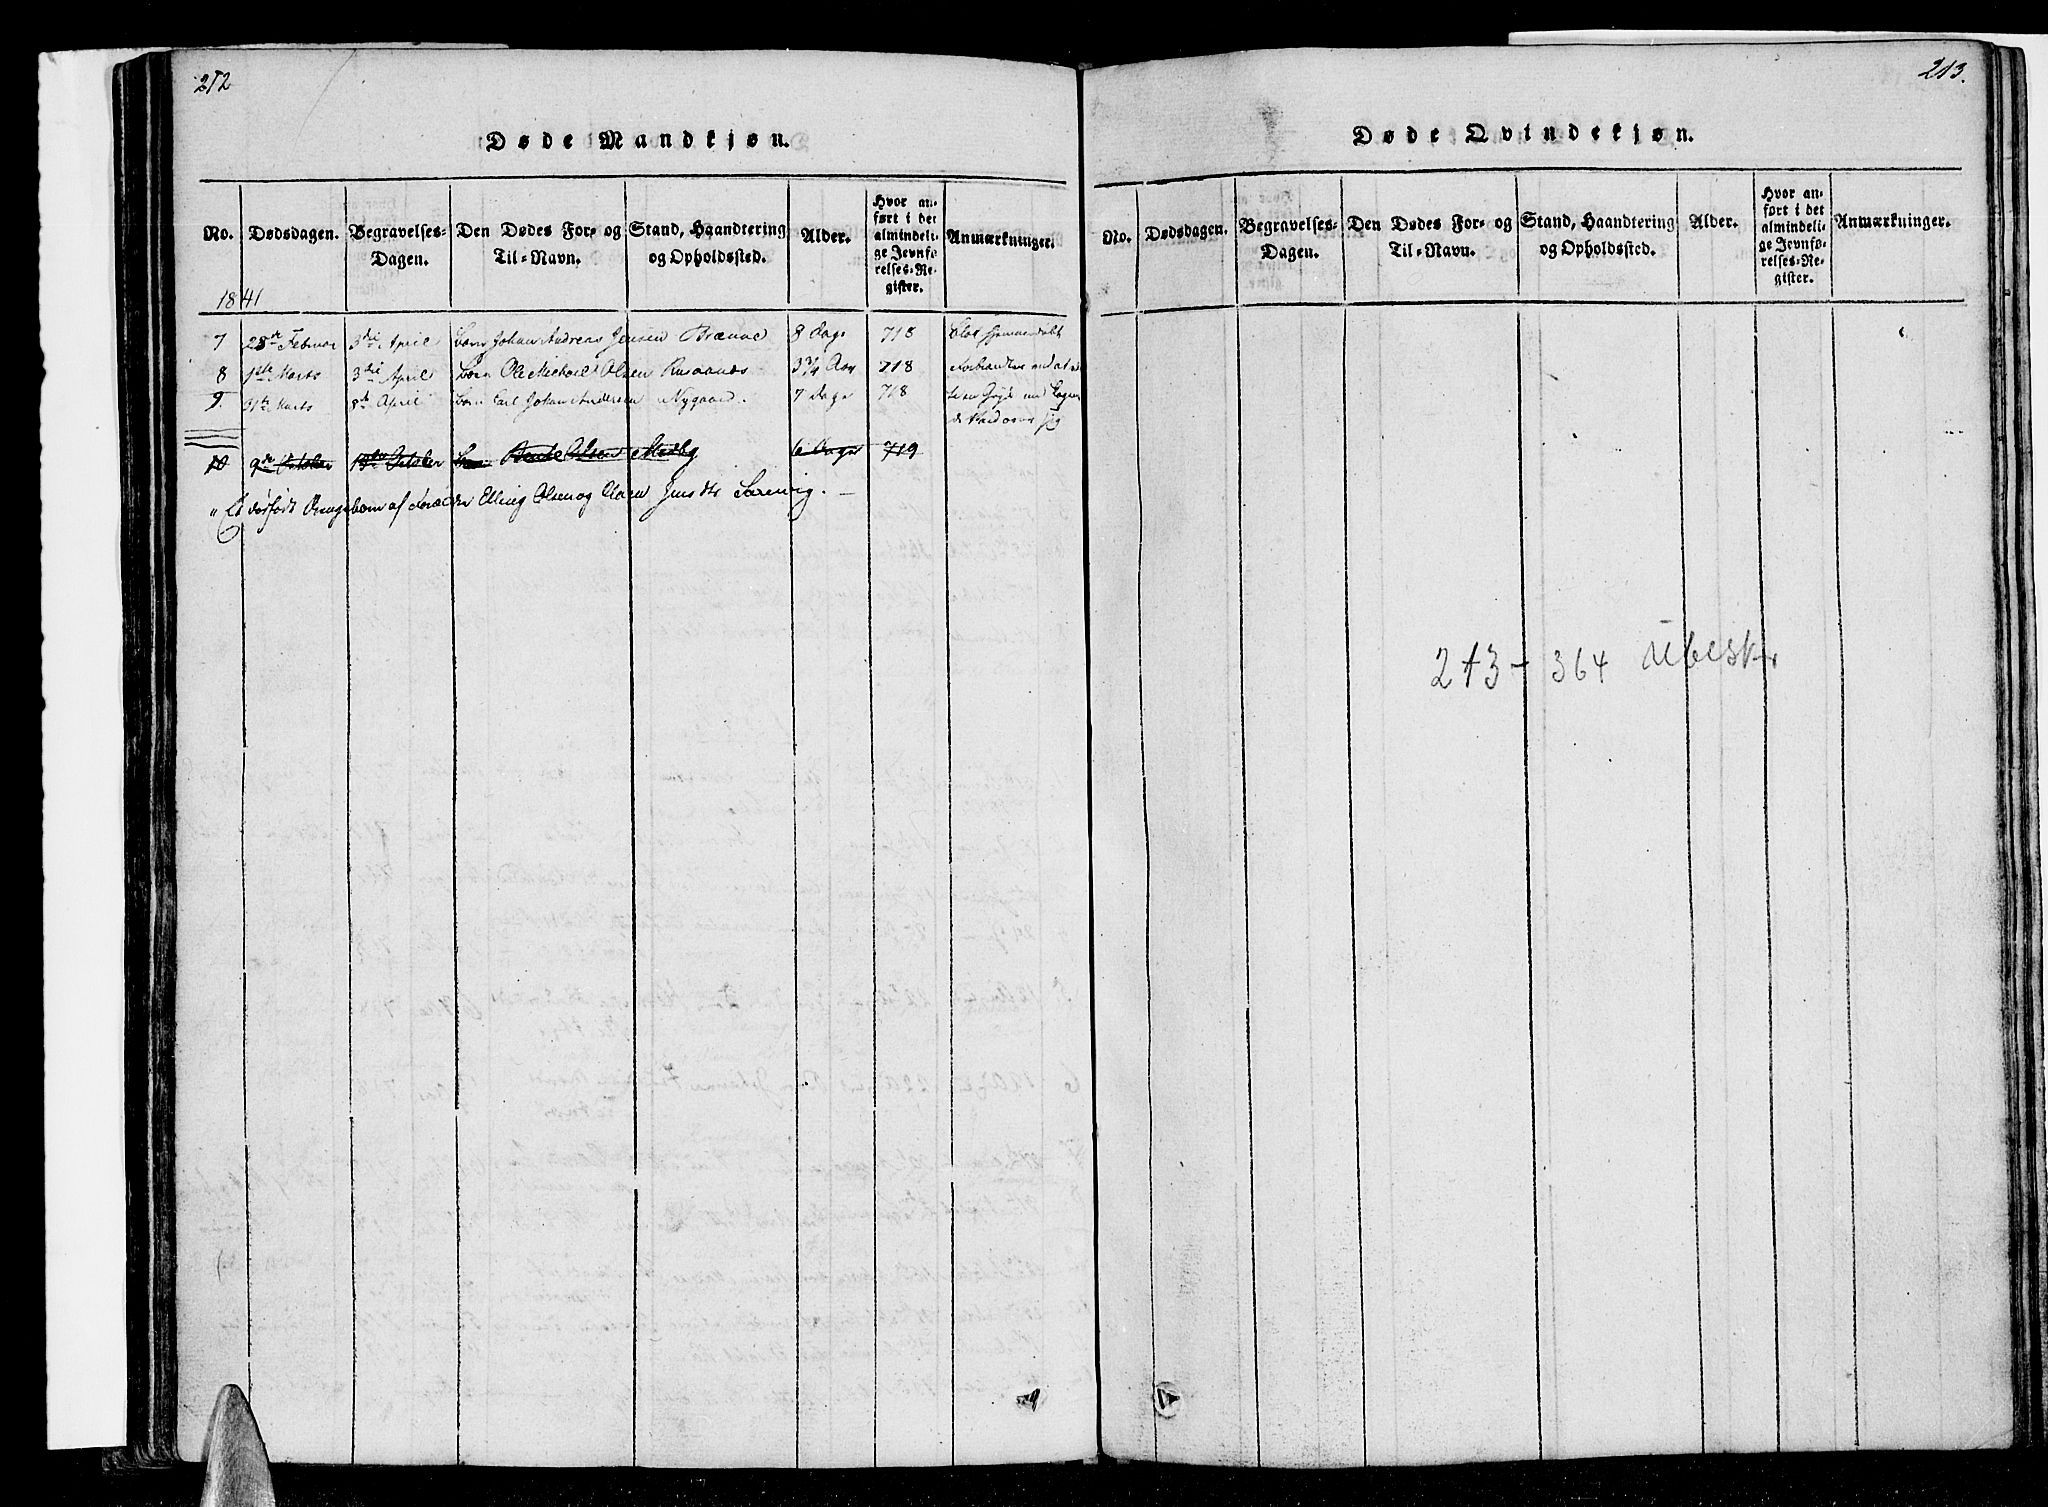 212
Døde Mandkjøn.
No. Dødsdagen. Begravelses-Dagen. Den Dødes For- og Til-Navn. Stand, Haandtering og Opholdssted. Alder. Hvor anført i det almindelige Jevnførelses-Register. Anmærkninger.
1841
7 28de Februar 3die April Barn Johan Andreas Jensen Brænne 8 Dage 718
8 1ste Marts 3die April Barn Ole Michael Olsen 3¾ Aar 718
9. 31te Marts 8de April Barn Carl Johan Andersen Nygaard. 7 Dage 718
10 9de October October Bendt Olsen 6 Dage 719
" Et dødfødt Drengebarn af Forældre Elling Olsen og Maren Jensdtr
213.
Døde Qvindekjøn.
No. Dødsdagen. Begravelses-Dagen. Den Dødes For- og Til-Navn. Stand, Haandtering og Opholdssted. Alder. Hvor anført i det almindelige Jevnførelses-Register. Anmærkninger.
213 - 364 ubeskr